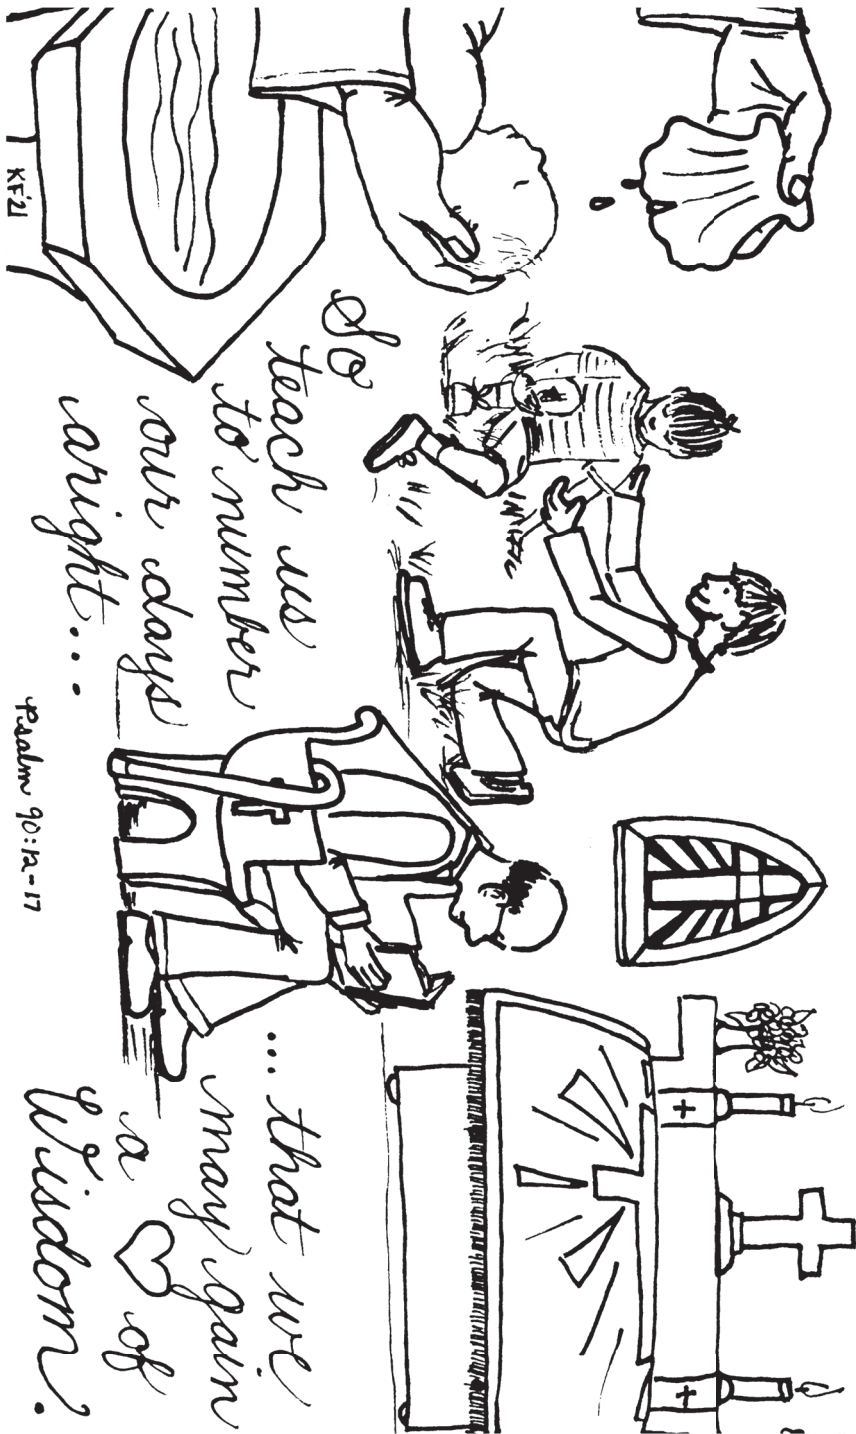 So
teach us
to number
our days
aright...
Psalm 90:12-17
...that we
may gain
a ♡ of
Wisdom.
KF'21